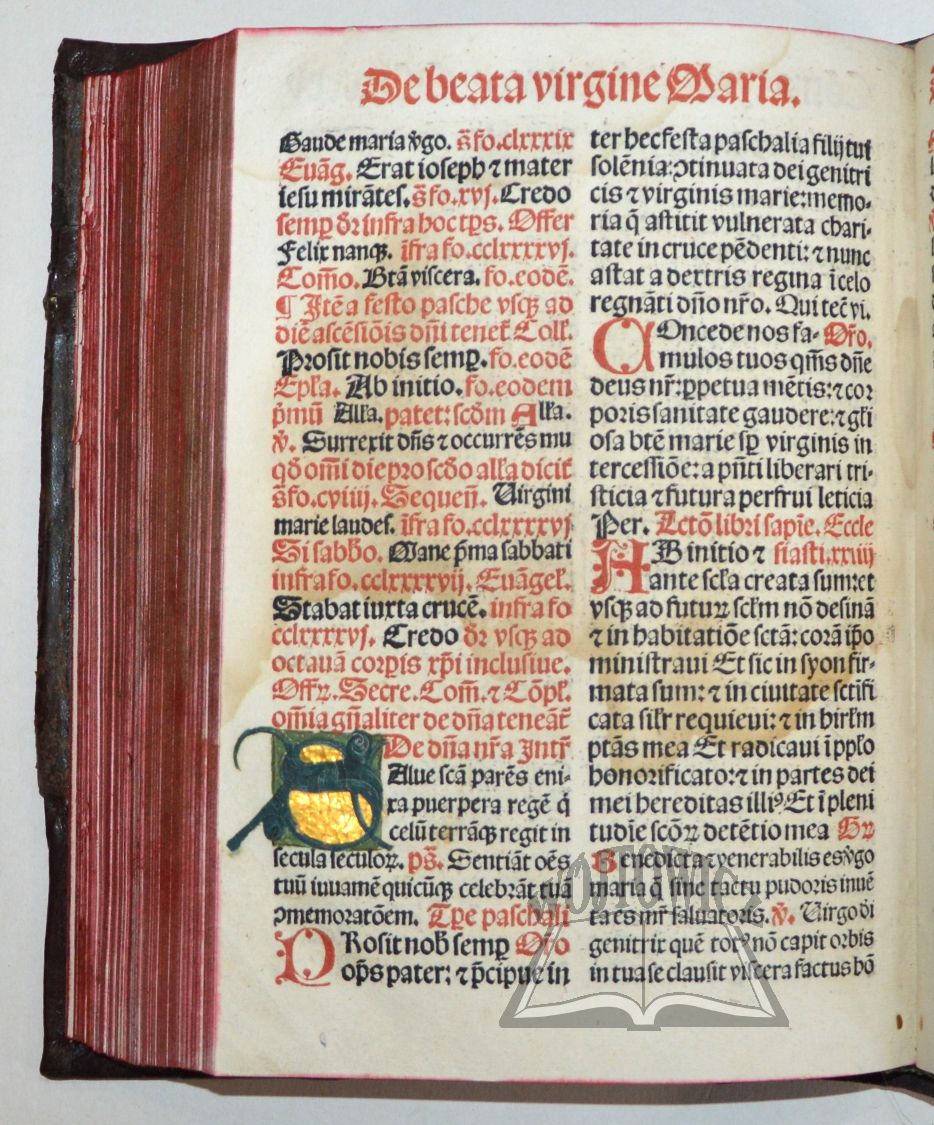 De beata virgine Maria.
Gaude maria v̄go. s̄ fo. clxxxix
Euāg. Erat ioseph ⁊ mater
iesu mirātes. s̄ fo. xvj. Credo
semꝑ dr̄ infra hoc tp̄s. Offer
Felix nanqꝫ. īfra fo. cclxxxxvj.
Com̄o. Btā viscera. fo. eodē.
¶ Itē a festo pasche vsqꝫ ad
diē ascēsiōis dn̄i tenet̄ Coll̄.
Prosit nobis semꝑ. fo. eodē
Epl̄a. Ab initio. fo. eodem
p̄mū All̄a. patet: scd̄m All̄a.
v̄. Surrexit dn̄s ⁊ occurrēs mu
qd̄ om̄i die pro scd̄o all̄a dicit̄
s̄ fo. cviiij. Sequen̄. Uirgini
marie laudes. īfra fo. cclxxxxvj
Si sabb̄o. Mane p̄ma sabbati
infra fo. cclxxxxvij. Euāgel̄.
Stabat iuxta crucē. infra fo
cclxxxxvj. Credo dr̄ vsqꝫ ad
octauā corꝑis xp̄i inclusiue.
Offꝝ. Secre. Com̄. ⁊ Cōpl̄.
om̄ia gn̄aliter de dn̄a teneāt̄
De dn̄a nr̄a Intr̄
SAlue scā parēs eni-
xa puerpera regē q̄
celū terrāqꝫ regit in
secula seculoꝝ. ps̄. Sentiāt oēs
tuū iuuamē quicūqꝫ celebrāt tuā
ↄmemoratōem. Tꝑe paschali
PRosit nob̄ semꝑ Oro
op̄s pater: ⁊ p̄cipue in
ter hec festa paschalia filij tui
solēnia: ↄtinuata dei genitri
cis ⁊ virginis marie: memo-
ria q̄ astitit vulnerata chari-
tate in cruce pēdenti: ⁊ nunc
astat a dextris regina ī celo
regnāti dn̄o nr̄o. Qui tec̄ vi.
COncede nos fa- Oro.
mulos tuos qm̄s dn̄e
deus nr̄: ꝑpetua mētis: ⁊ cor
poris sanitate gaudere: ⁊ gl̄i
osa btē marie sꝑ virginis in
tercessiōe: a pn̄ti liberari tri-
sticia ⁊ futura perfrui leticia
Per. Lctō libri sapiē. Eccle
AB initio ⁊ siasti. xxiiij
ante scl̄a creata sum: et
vsqꝫ ad futuꝝ scl̄m nō desinā
⁊ in habitatiōe sctā: corā ip̄o
ministraui Et sic in syon fir-
mata sum: ⁊ in ciuitate sctīfi
cata sil̄r requieui: ⁊ in hirl̄m
ptās mea Et radicaui ī ppl̄o
honorificato: ⁊ in partes dei
mei hereditas illiꝰ. Et ī pleni
tudīe scōꝝ detētio mea Gꝝ
Benedicta ⁊ venerabilis es v̄go
maria q̄ sine tactu pudoris inuē
ta es mr̄ saluatoris. v̄. Uirgo d̄i
genitrix quē totꝰ nō capit orbis
in tua se clausit viscera factus hō
WÓJTOWICZ